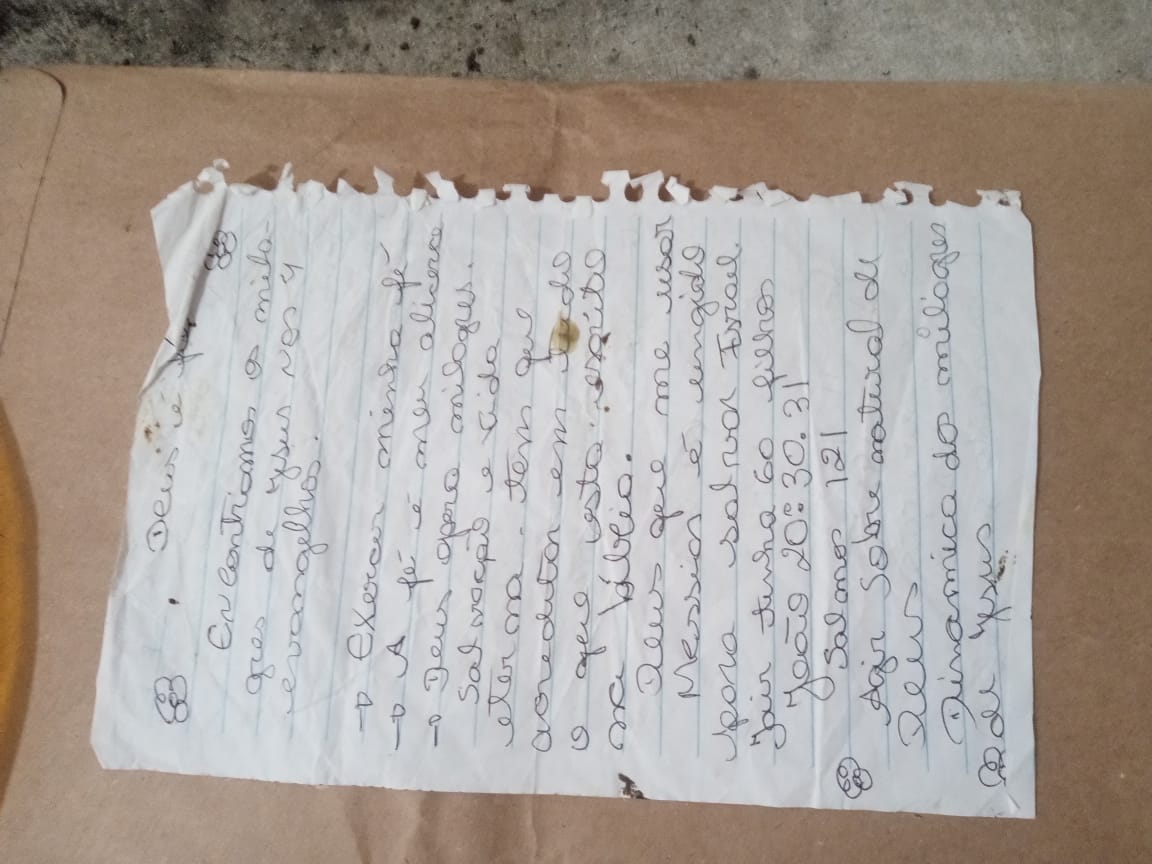 Deus e fé
Encontramos o mila-
gres de Ysus nos 4
evangelhos.
→ Exercer minha fé
→ A fé é meu alicerce
→ Deus opera milagres.
Salvação e vida
eterna. tem que
acreditar em tudo
o que esta escrito
na bíblia.
Deus que me usar
Messias é ungido
para salvar Israel.
Jair tinha 60 filhos
João 20:30.31
Salmos 121
Agir Sobre natural de
Deus
Dinamica dos milagres
de Ysus